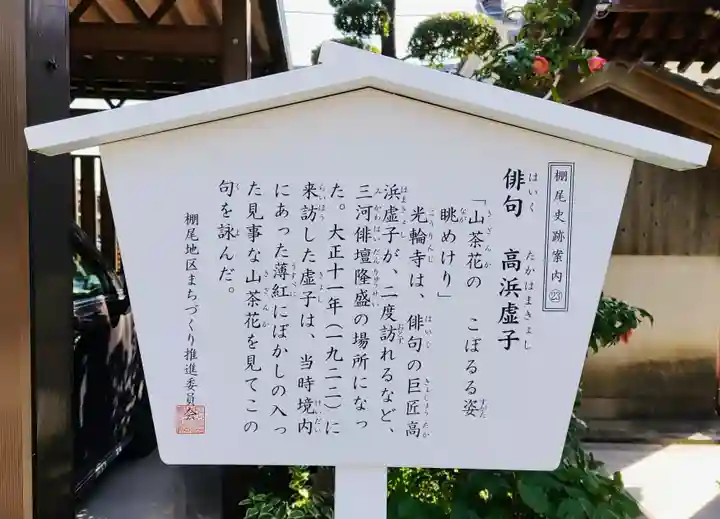 棚尾史跡案内㉓
俳句 高浜虚子
「山茶花の こぼるる姿
眺めけり」
光輪寺は、俳句の巨匠高
浜虚子が、二度訪れるなど、
三河俳壇隆盛の場所になっ
た。大正十一年（一九二二）に
来訪した虚子は、当時境内
にあった薄紅にぼかしの入っ
た見事な山茶花を見てこの
句を詠んだ。
棚尾地区まちづくり推進委員会